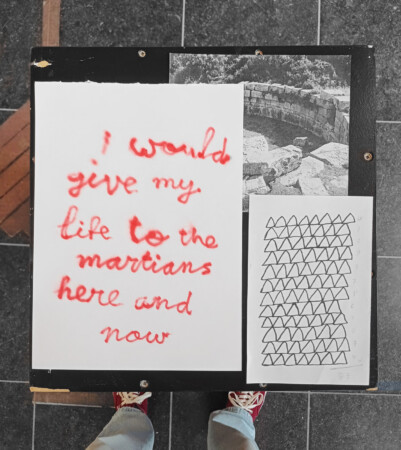 I would
give my
life to the
martians
here and
now